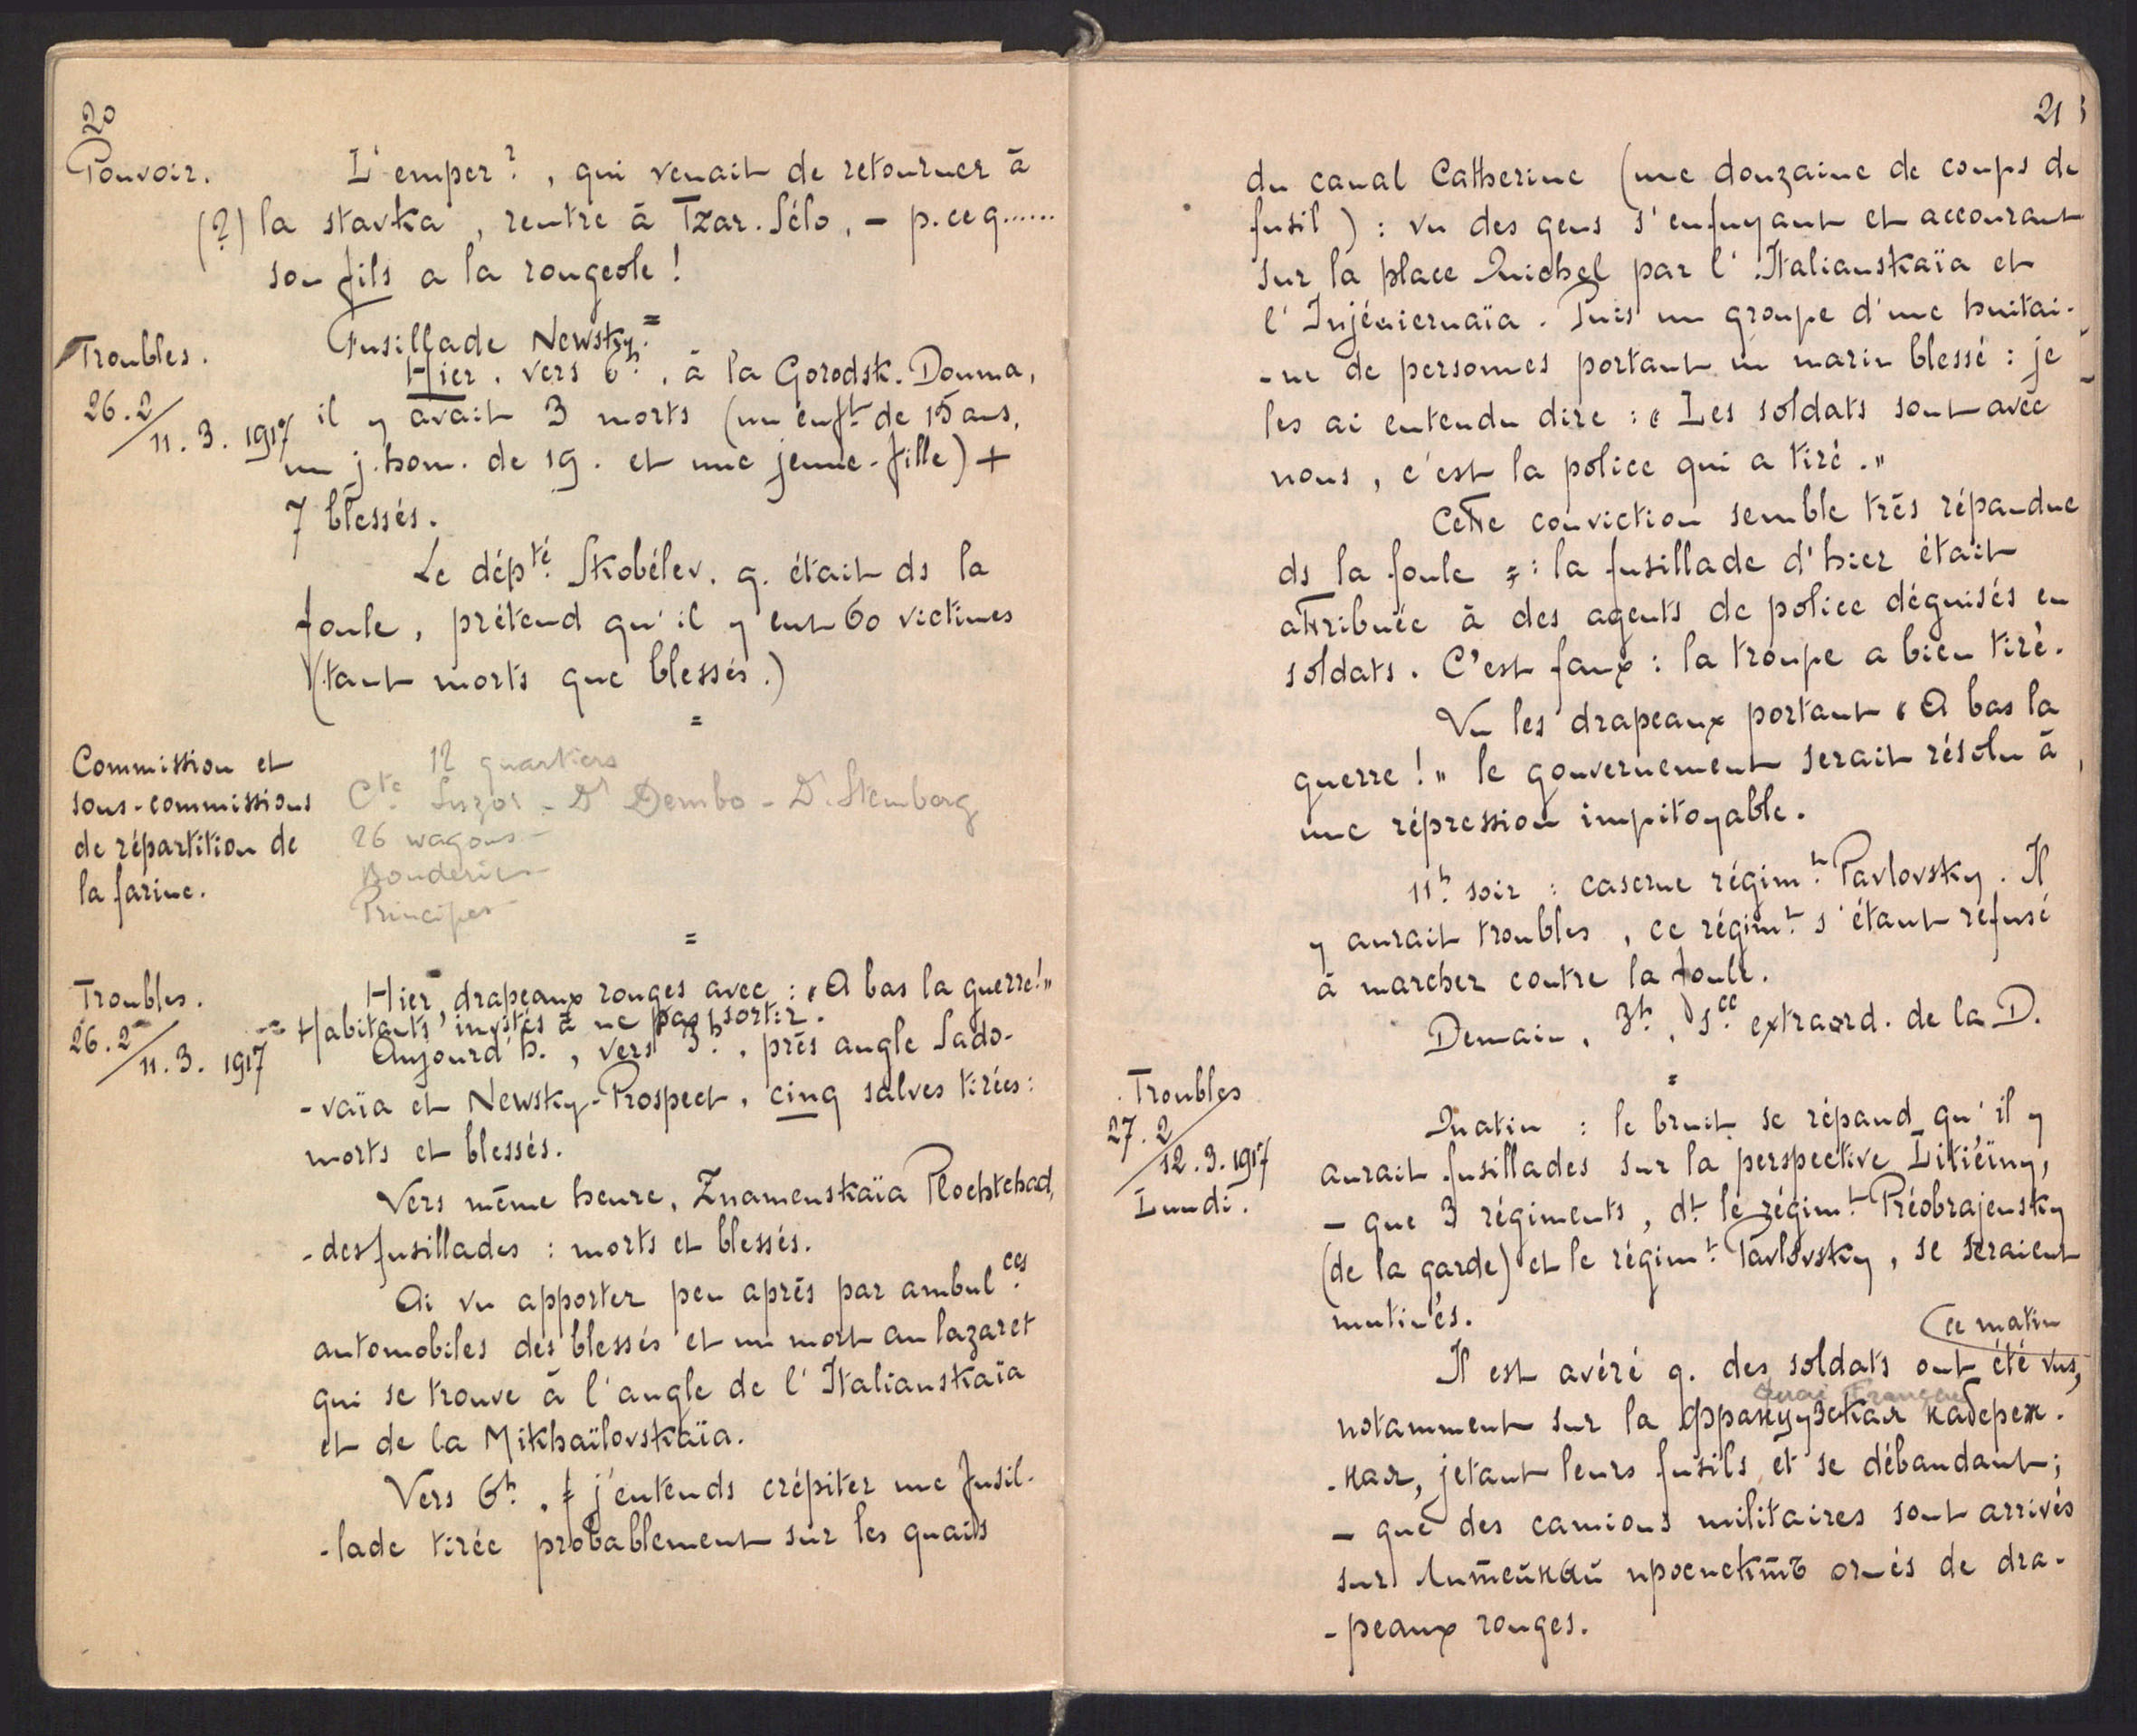 20
Pouvoir.
L'emperr, qui venait de retourner à
(?) la stavka, rentre à Tzar. Sélo, – p. ce q......
son fils a la rougeole !
=
Troubles.
26.2/11.3.1917
Fusillade Newsky.
Hier, vers 6h, à la Gorodsk. Douma,
il y avait 3 morts (un enft de 15 ans,
un j. hom. de 19. et une jeune-fille) +
7 blessés.
Le dépté Skobélev, q. était ds la
foule, prétend qu'il y eut 60 victimes
(tant morts que blessés.)
=
Commission et
sous-commissions
de répartition de
la farine.
12 quartiers
Cte Suzor - Dr Dembo - Dr Sternberg
26 wagons
Principes
=
Troubles.
26.2/11.3.1917
Hier, drapeaux rouges avec : « A bas la guerre! »
= Habitants invités à ne pas sortir.
Aujourd'h., vers 3h, près angle Sado-
-vaïa et Newsky-Prospect, cinq salves tirées :
morts et blessés.
Vers même heure, Znamenskaïa Plochtchad,
-des fusillades : morts et blessés.
Ai vu apporter peu après par ambulces
automobiles des blessés et un mort au lazaret
qui se trouve à l'angle de l'Italianskaïa
et de la Mikhaïlovskaïa.
Vers 6h, j'entends crépiter une fusil-
-lade tirée probablement sur les quais
21
du canal Catherine (une douzaine de coups de
fusil) : vu des gens s'enfuyant et accourant
sur la place Michel par l'Italianskaïa et
l'Injéniernaïa. Puis un groupe d'une huitai-
-ne de personnes portant un marin blessé : je
les ai entendu dire : « Les soldats sont avec
nous, c'est la police qui a tiré. »
Cette conviction semble très répandue
ds la foule : la fusillade d'hier était
attribuée à des agents de police déguisés en
soldats. C'est faux : la troupe a bien tiré.
Vu les drapeaux portant « A bas la
guerre ! » le gouvernement serait résolu à
une répression impitoyable.
11h soir : caserne régimt Pavlovsky. Il
y aurait troubles, ce régimt s'étant refusé
à marcher contre la foule.
Demain, 3h, sce extraord. de la D.
=
Troubles
27.2/12.3.1917
Lundi.
Matin : le bruit se répand qu'il y
aurait fusillades sur la perspective Litiéïny,
– que 3 régiments, dt le régimt Préobrajensky
(de la garde) et le régimt Pavlovsky, se seraient
mutinés.
ce matin
Il est avéré q. des soldats ont été vus,
Quai Français
notamment sur la Французская набереж-
-ная, jetant leurs fusils et se débandant ;
– que des camions militaires sont arrivés
sur Литейный проспектъ ornés de dra-
-peaux rouges.